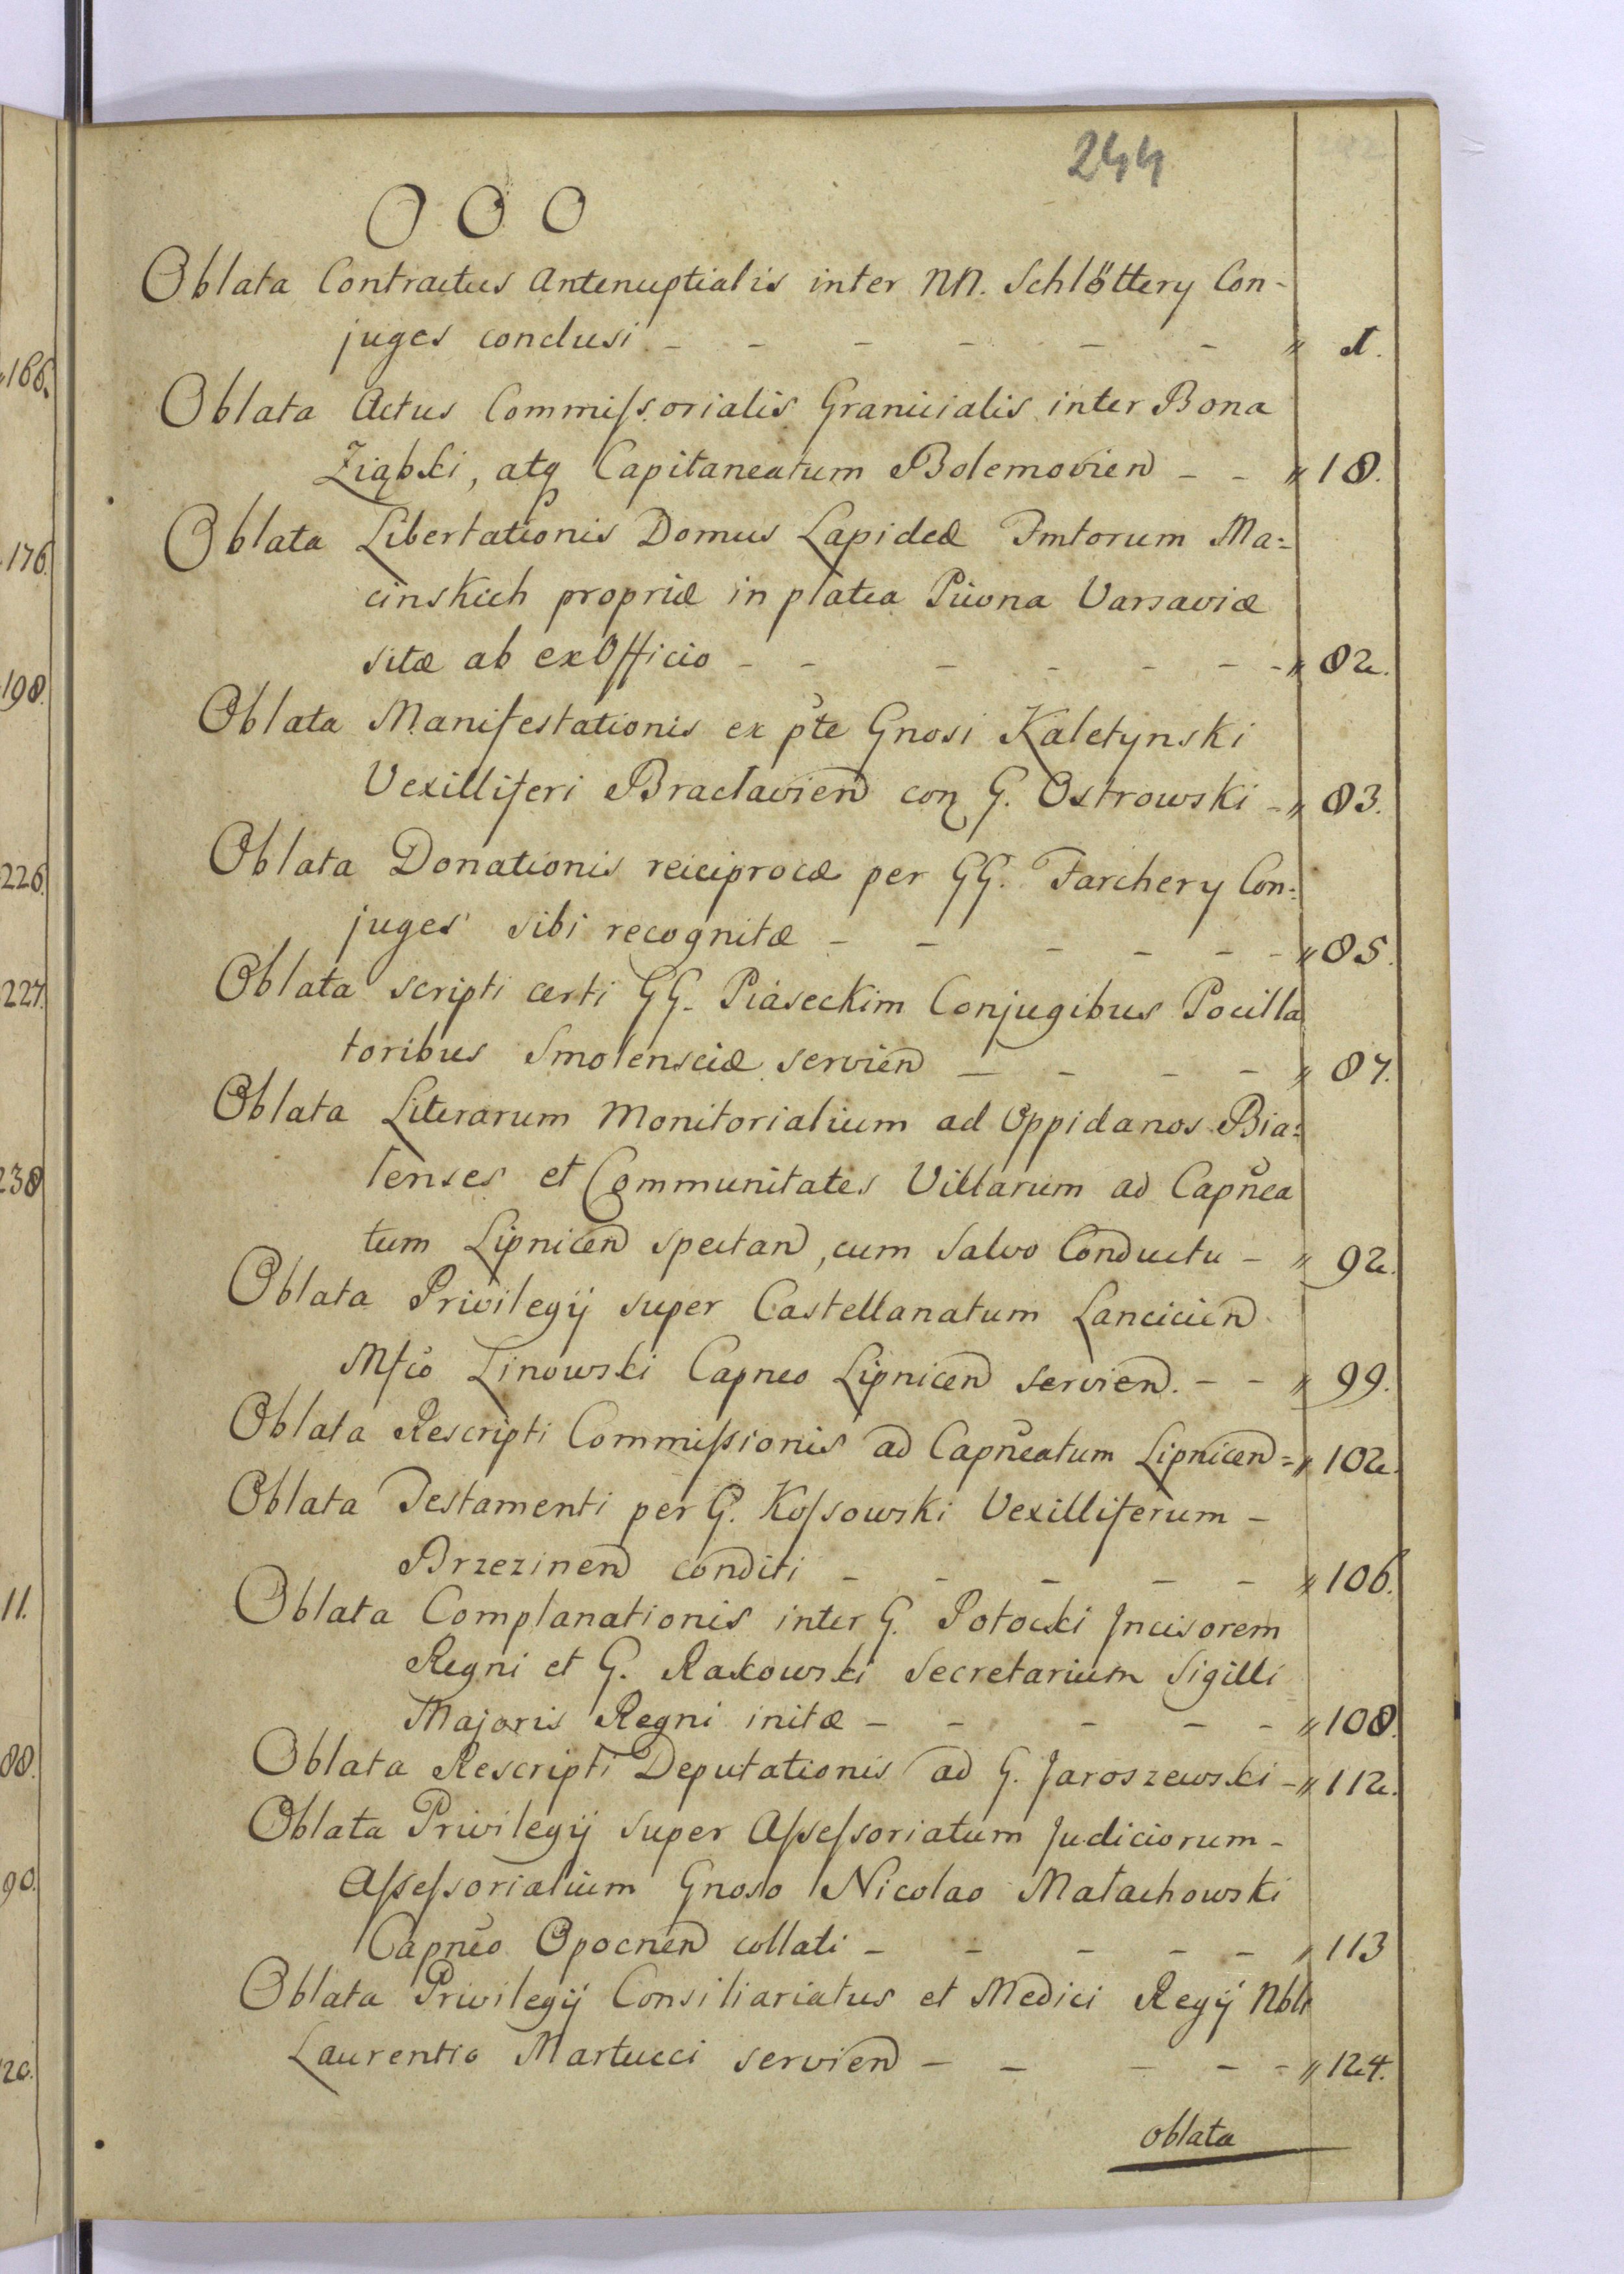 244
O O O
Oblata Contractus Antenuptialis inter NN. Schlöttery Con-
juges conclusi - - - - - - " 1.
Oblata Actus Commissorialis Granicialis inter Bona
Ziąbki, atq Capitaneatum Bolemovien - - " 18.
Oblata Libertationis Domus Lapideæ Imtorum Ma=
cinskich propriæ in platea Piwna Varsaviæ
sitæ ab ex Officio - - - - - - " 82.
Oblata Manifestationis ex pte Gnosi Kaletynski
Vexilliferi Braclavien con G. Ostrowski - " 83.
Oblata Donationis reiciprocæ per GG. Farchery Con=
juges sibi recognitæ - - - - - - " 85.
Oblata scripti certi GG. Piaseckim Conjugibus Pocilla
toribus Smolensciæ servien - - - - " 87.
Oblata Literarum Monitorialium ad Oppidanos Bia=
lenses et Communitates Villarum ad Capnea
tum Lipnicen spectan, cum Salvo Conductu - " 92.
Oblata Privilegij super Castellanatum Lancicien
Mfco Linowski Capneo Lipnicen servien. - - " 99.
Oblata Rescripti Commissionis ad Capneatum Lipnicen = " 102.
Oblata Testamenti per G. Kossowski Vexilliferum -
Brzezinen conditi - - - - - " 106.
Oblata Complanationis inter G. Potocki Incisorem
Regni et G. Rakowski Secretarium Sigilli
Majoris Regni initæ - - - - - " 108.
Oblata Rescripti Deputationis ad G. Jaroszewski - " 112.
Oblata Privilegij super Assessoriatum Judiciorum -
Assessorialium Gnoso Nicolao Małachowski
Capneo Opocnen collati - - - - - " 113
Oblata Privilegij Consiliariatus et Medici Regij Nbli
Laurentio Martucci servien - - - - - " 124.
oblata
166.
176.
198.
226.
227.
238
11.
88.
90.
20.